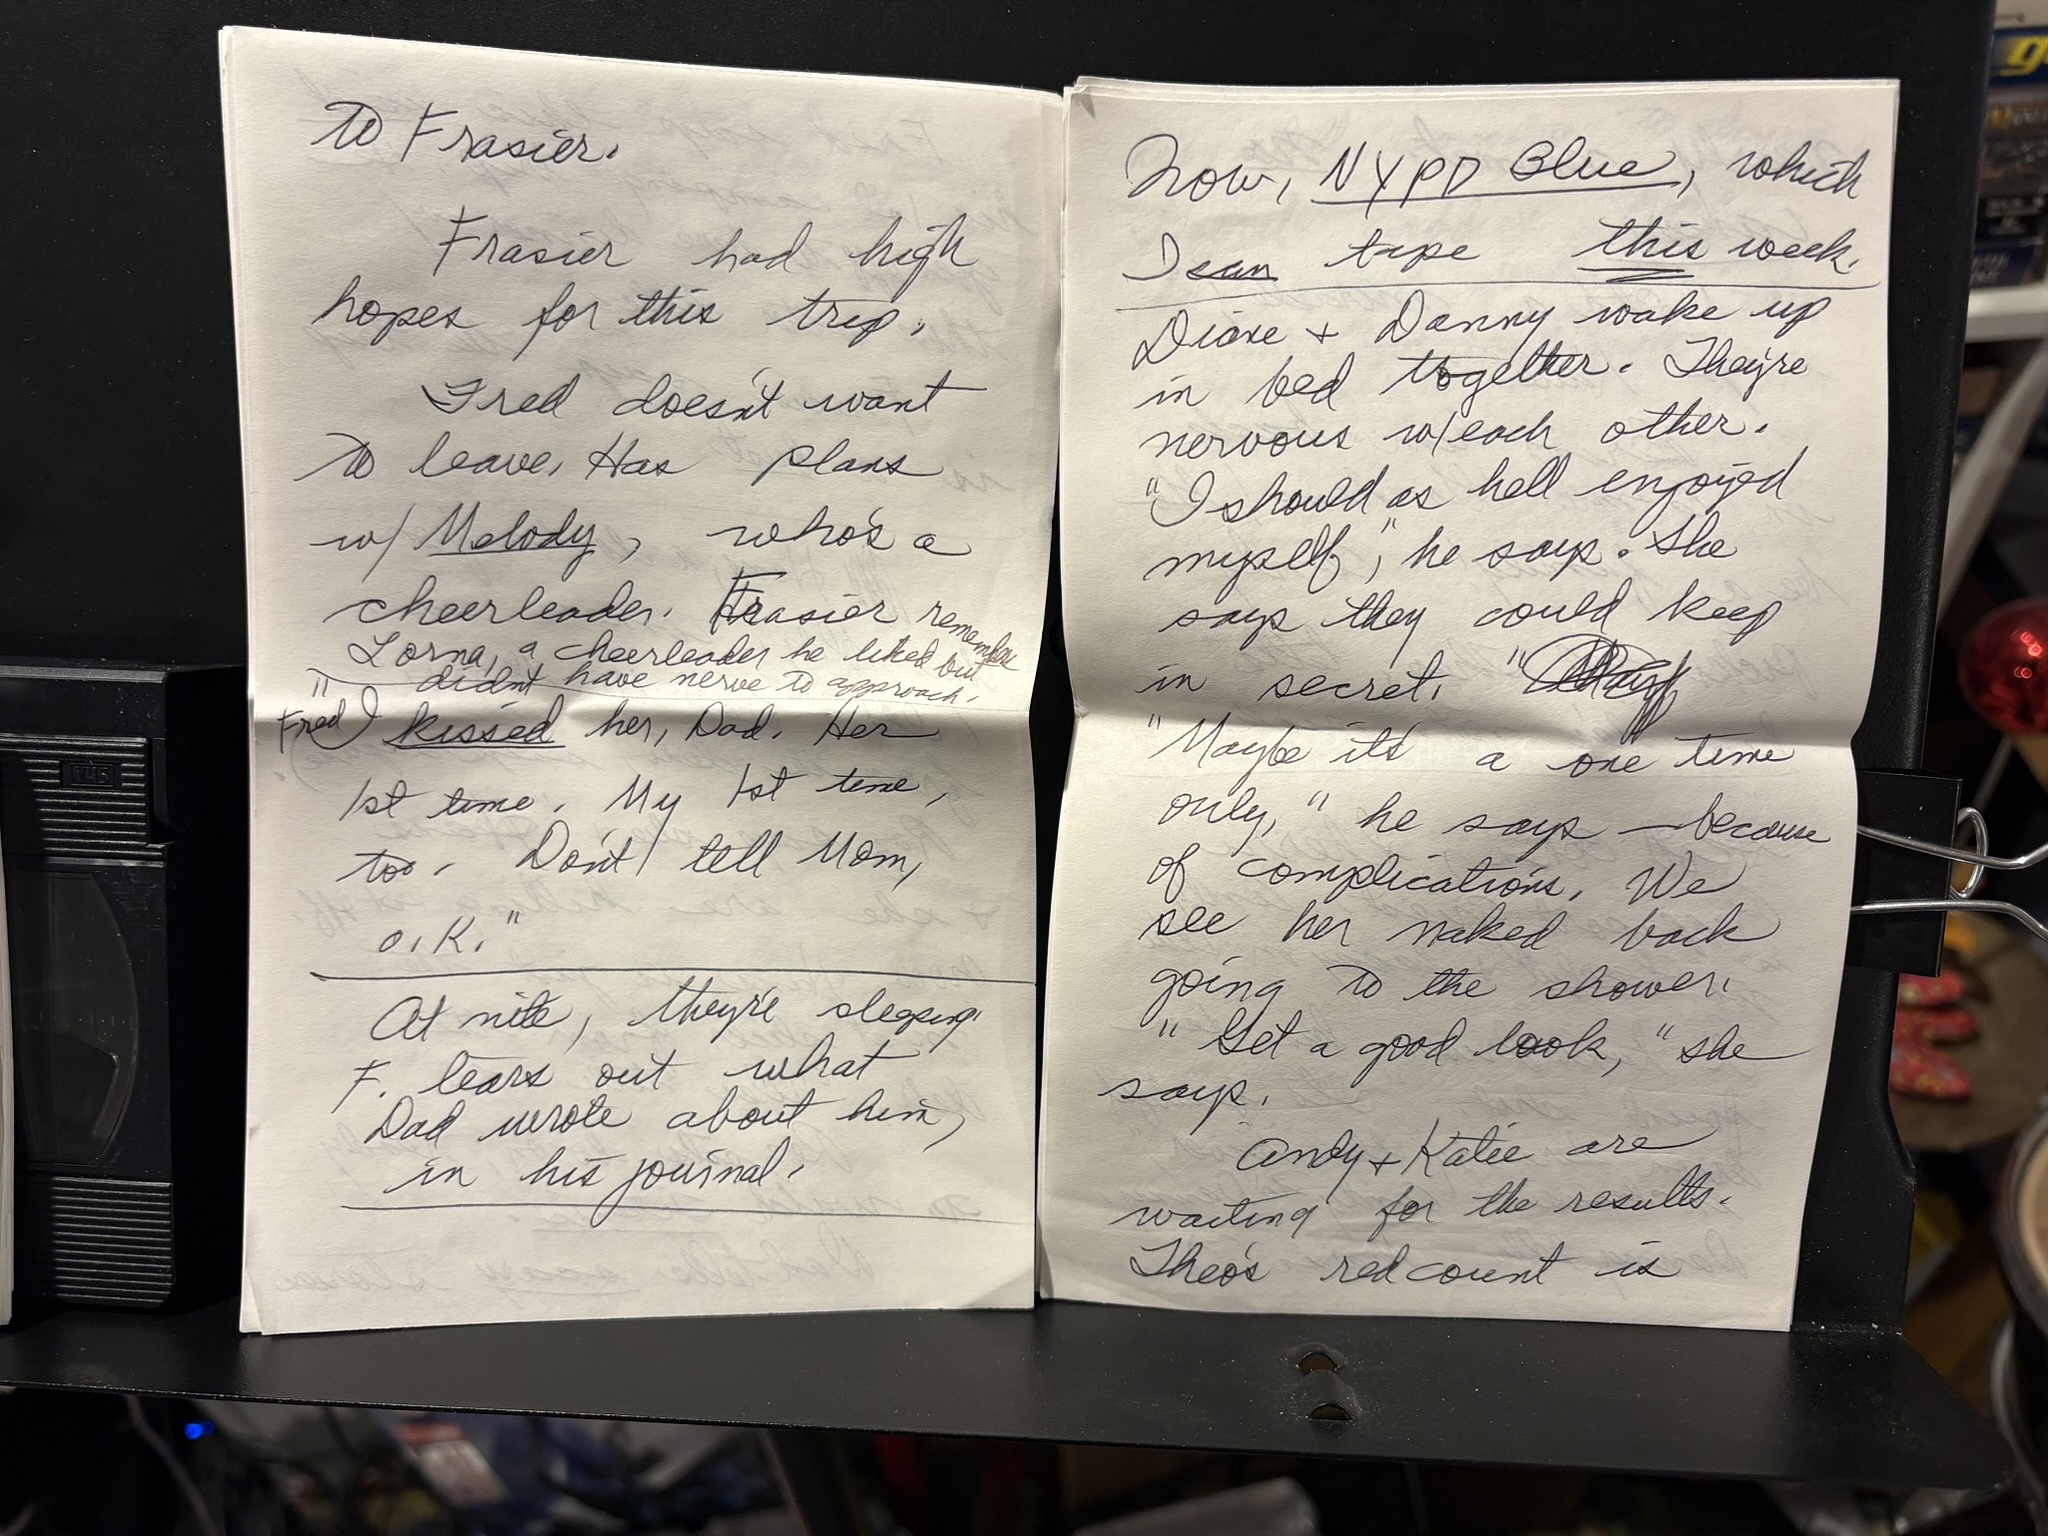 to Frasier.
Frasier had high
hopes for this trip,
Fred doesn't want
to leave. Has plans
w/ Melody, who's a
cheerleader. Frasier remembers
Lorna, a cheerleader he liked but
didn't have nerve to approach.
"
Fred I kissed her, Dad. Her
1st time. My 1st time,
too. Don't tell Mom,
O.K."
At nite, they're sleeping.
F. tears out what
Dad wrote about him,
in his journal.
Now, NYPD Blue, which
I can tape this week.
Diane + Danny wake up
in bed together. They're
nervous w/each other.
"I should as hell enjoyed
myself", he says. She
says they could keep
in secret. "
"Maybe it's a one time
only," he says — because
of complications. We
see her naked back
going to the shower.
"Get a good look," she
says.
Andy + Katie are
waiting for the results.
Theo's red count is
VHS